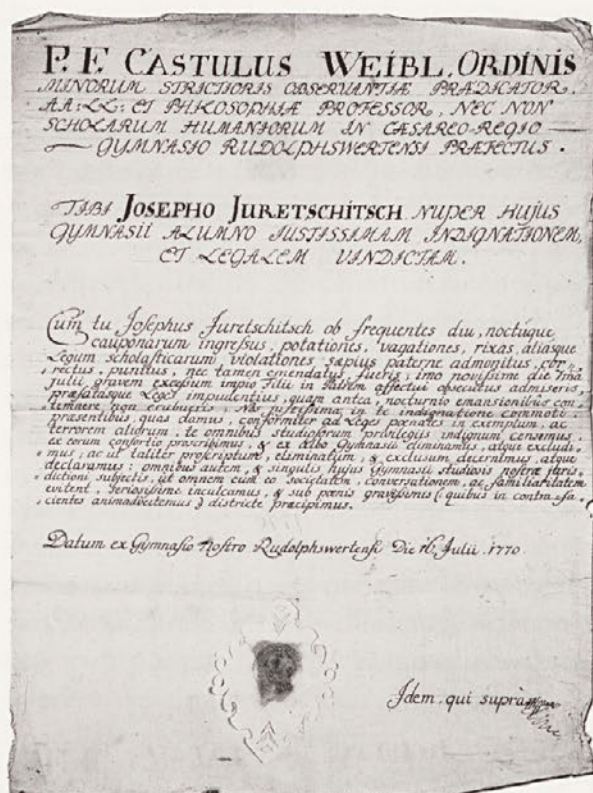 P. F. CASTULUS WEIBL, ORDINIS
MINORUM STRICTIORIS OBSERVANTIÆ PRÆDICATOR,
AA: LL: ET PHILOSOPHIÆ PROFESSOR, NEC NON
SCHOLARUM HUMANIORUM IN CÆSAREO-REGIO
GYMNASIO RUDOLPHSWERTENSI PRÆFECTUS.
TIBI JOSEPHO JURETSCHITSCH NUPER HUJUS
GYMNASII ALUMNO JUSTISSIMAM INDIGNATIONEM,
ET LEGALEM VINDICTAM.
Cum tu Josephus Juretschitsch ob frequentes diu, noctúque
cauponarum ingreſsus, potationes, vagationes, rixas, aliasque
Legum scholaſticarum violationes sæpius paterne admonitus, cor=
rectus, punitus, nec tamen emendatus fueris, imo noviſsime die 7ma
Julii gravem exceſsum impio Filii in Patrem affectui obsecutus admiseris,
præfatasque Leges impudentius, quam antea, nocturnis emansionibus con
temnere non erubueris; Nos juſtiſsima in te indignatione commoti
præsentibus, quas damus, conformiter ad Leges pœnales in exemplum, ac
terrorem aliorum, te omnibus studiosorum privilegiis indignum censemus,
ex eorum consortio proscribimus, & ex albo Gymnasii eliminamus, atque excludi=
mus; ac ut taliter proscriptum, eliminatum, & exclusum decernimus, atque
declaramus: omnibus autem, & singulis hujus Gymnasii studiosis noſtræ juris=
dictioni subjectis, ut omnem cum eo societatem, conversationem, ac familiaritatem
evitent, serioſiſsime inculcamus, & sub pœnis graviſsimis (quibus in contra=fa=
cientes animadvertemus) diſtricte præcipimus.
Datum ex Gymnasio Noſtro Rudolphswertenſi Die 16. Julii. 1770
Idem, qui supra